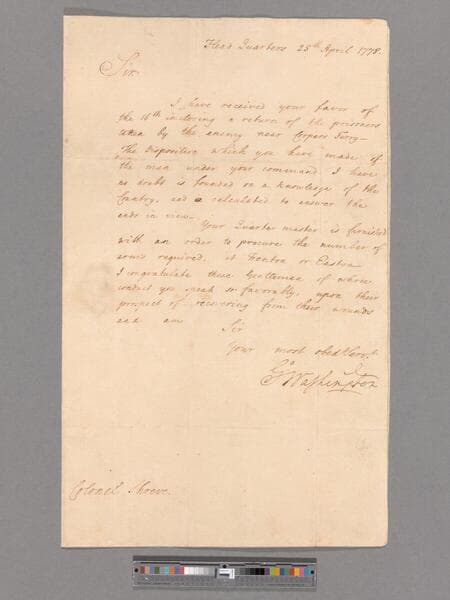 Head Quarters 25th April 1778.
Sir
I have received your favor of
the 16th inclosing a return of the prisoners
taken by the enemy near Coopers Ferry—
The disposition which you have made of
the men under your command I have
no doubt is founded on a knowledge of the
Contry, and calculated to answer the
ends in view.—
Your Quarter master is furnished
with an order to procure the number of
arms required, at Trenton or Easton
I congratulate those Gentlemen of whose
conduct you speak so favorably, upon their
prospect of recovering from their wounds
and am
Sir
Your most obed Servt
Go Washington
Colonel Shreve.